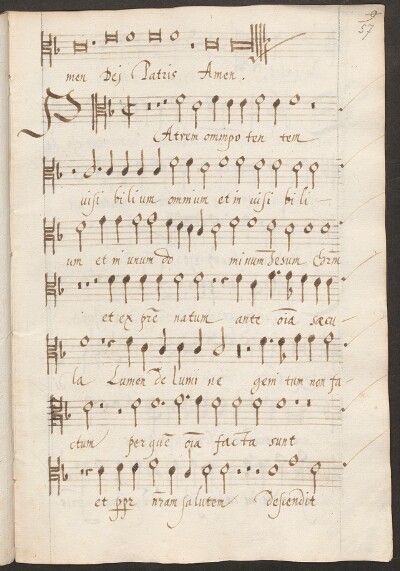 9
57
men Dej Patris Amen.
P Atrem omnipo ten tem
visi bilium omnium et in visi bi li
um et in unum do minum Jesum Chrm
et ex pre natum ante oia sæcu
la Lumen de lumi ne geni tum non fa
ctum per que oia facta sunt
et ppr nram salutem descendit